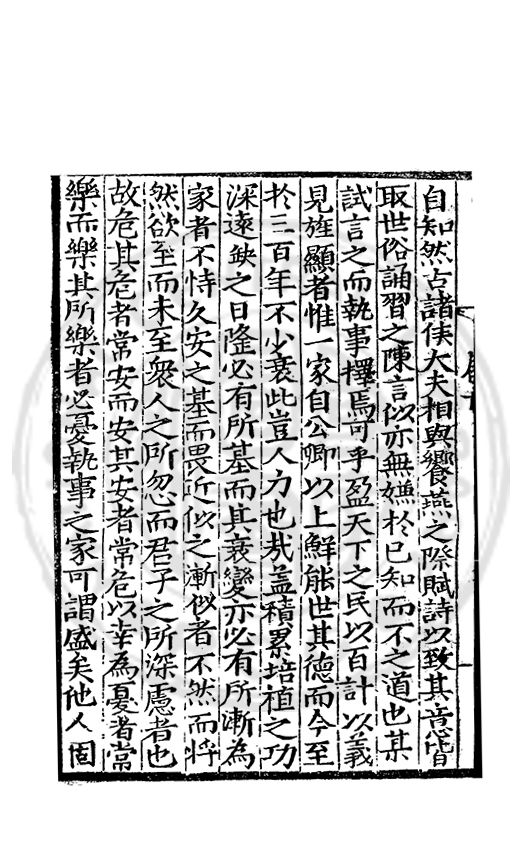 自知然古諸侯大夫相與饗燕之際賦詩以致其意皆
取世俗誦習之陳言以亦無嫌於已知而不之道也某
試言之而執事擇焉可乎盈天下之民以百計以義
見旌顯者惟一家自公卿以上鮮能世其德而今至
於三百年不少衰此豈人力也哉盖積累培植之功
深遠缺之日隆必有所基而其衰變亦必有所漸為
家者不恃久安之基而畏近似之漸似者不然而將
然欲至而未至衆人之所忽而君子之所深慮者也
故危其危者常安而安其安者常危以幸為憂者常
樂而樂其所樂者必憂執事之家可謂盛矣他人固